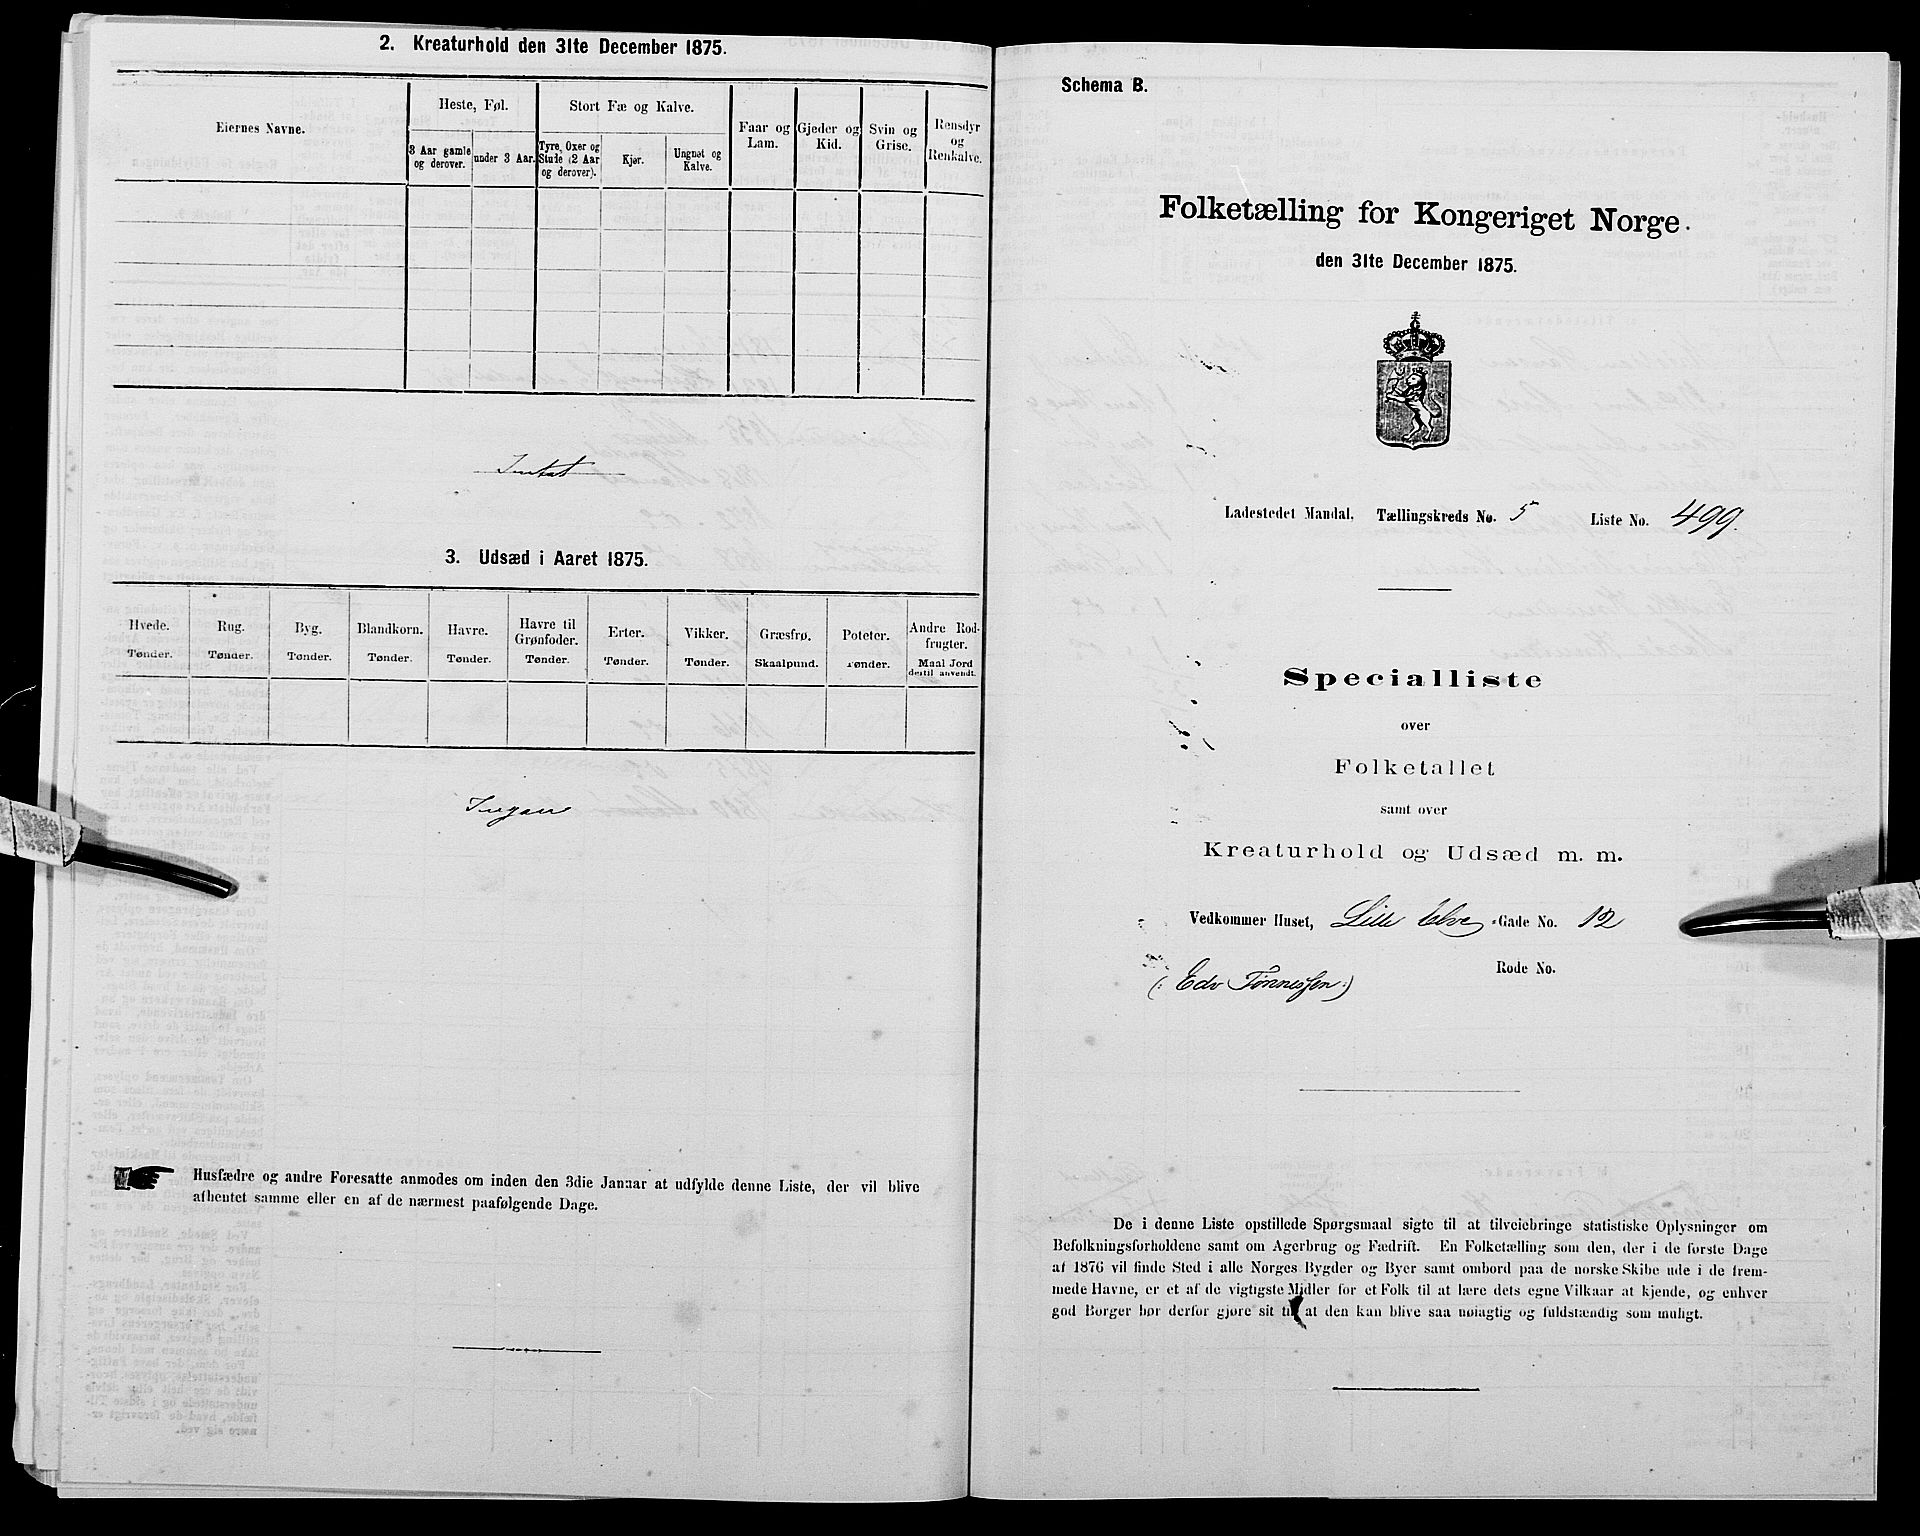 2. Kreaturhold den 31te December 1875.
Eiernes Navne.
Heste, Føl.
3 Aar gamle og derover.
under 3 Aar.
Stort Fæ og Kalve.
Tyre, Oxer og Stude (2 Aar og derover).
Kjør.
Ungnøt og Kalve.
Faar og Lam.
Gjeder og Kid.
Svin og Grise.
Rensdyr og Renkalve.
Intet
3. Udsæd i Aaret 1875.
Hvede. Tønder.
Rug. Tønder.
Byg. Tønder.
Blandkorn. Tønder.
Havre. Tønder.
Havre til Grønfoder. Tønder.
Erter. Tønder.
Vikker. Tønder.
Græsfrø. Skaalpund.
Poteter. Tønder.
Andre Rodfrugter. Maal Jord dertil anvendt.
Ingen
Husfædre og andre Foresatte anmodes om inden den 3die Januar at udfylde denne Liste, der vil blive
afhentet samme eller en af de nærmest paafølgende Dage.
Schema B.
Folketælling for Kongeriget Norge.
den 31te December 1875.
Ladestedet Mandal, Tællingskreds No. 5 Liste No. 499.
Specialliste
over
Folketallet
samt over
Kreaturhold og Udsæd m. m.
Vedkommer Huset, Lille Elve -Gade No. 12
Rode No.
(: Edv Tønnessen :)
De i denne Liste opstillede Spørgsmaal sigte til at tilveiebringe statistiske Oplysninger om
Befolkningsforholdene samt om Agerbrug og Fædrift. En Folketælling som den, der i de første Dage
af 1876 vil finde Sted i alle Norges Bygder og Byer samt ombord paa de norske Skibe ude i de frem-
mede Havne, er et af de vigtigste Midler for et Folk til at lære dets egne Vilkaar at kjende, og enhver
god Borger bør derfor gjøre sit til at den kan blive saa nøiagtig og fuldstændig som muligt.